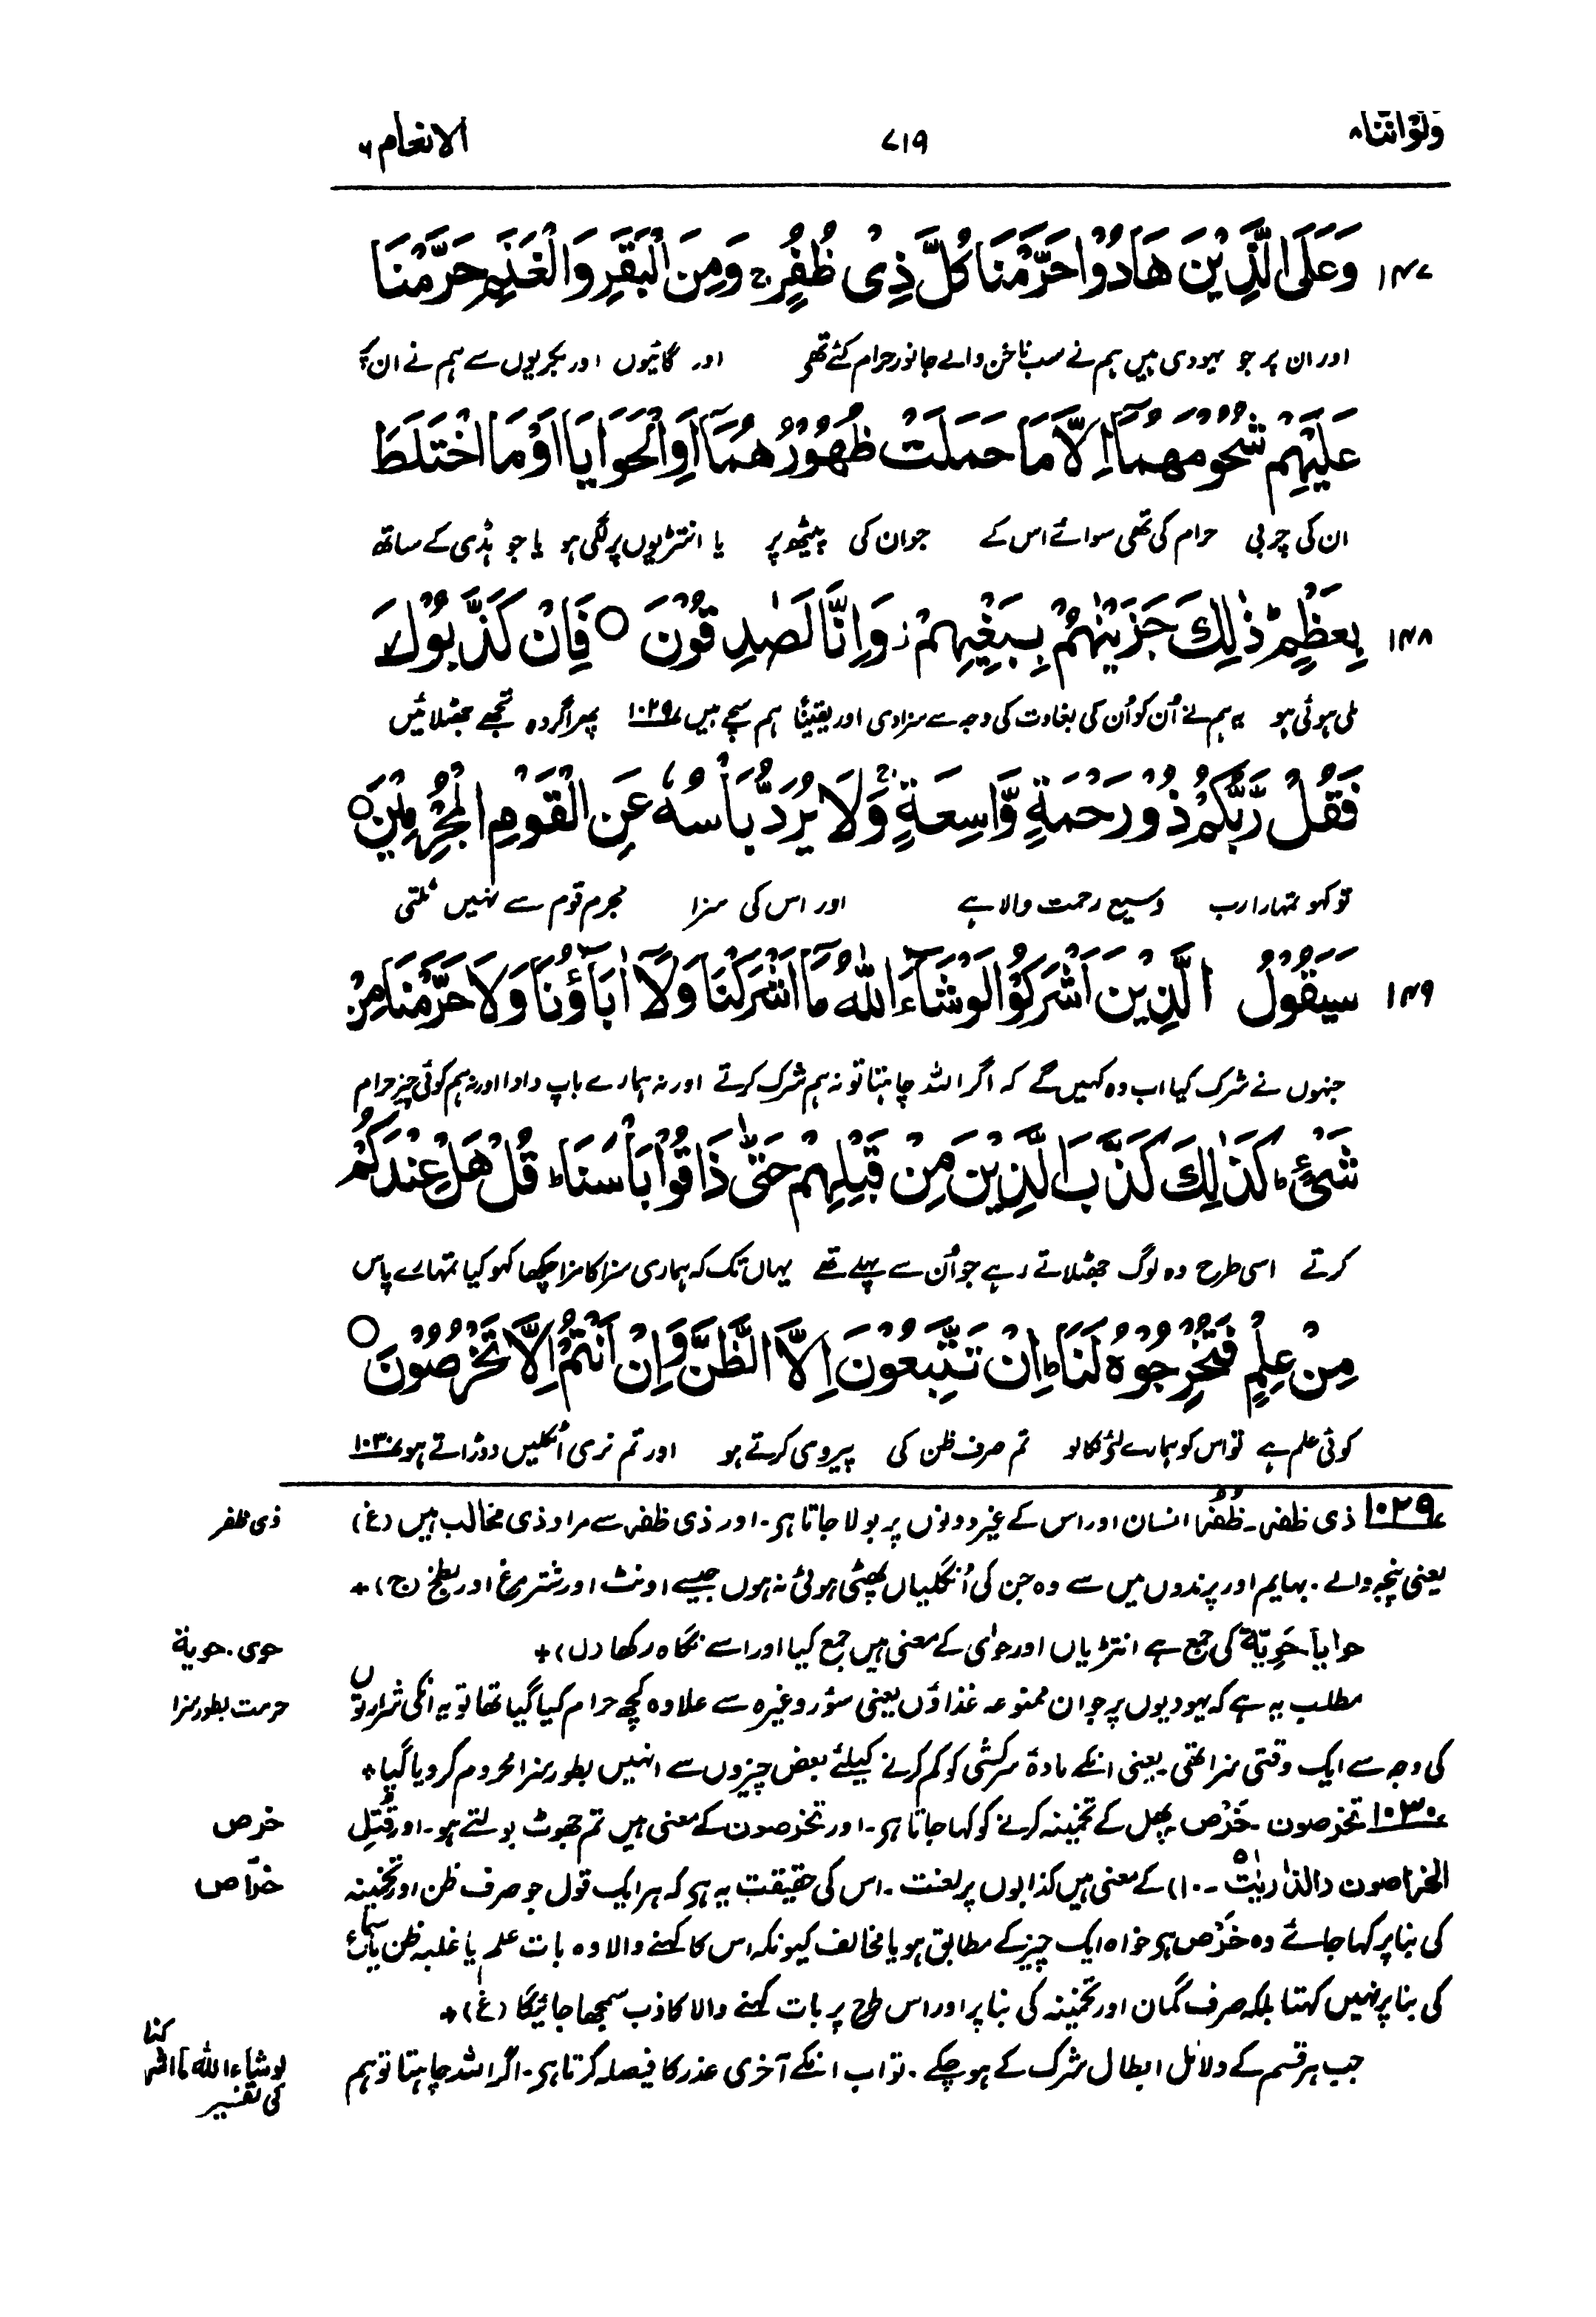 ولواننا ۸
۷۱۹
الانعام ۶
۱۴۷ وَعَلَى الَّذِيْنَ هَادُوْا حَرَّمْنَا كُلَّ ذِيْ ظُفُرٍ ج وَمِنَ الْبَقَرِ وَالْغَنَمِ حَرَّمْنَا
اور ان پر جو یہودی ہیں ہم نے سب ناخن والے جانور حرام کئے تھے اور گائیوں اور بکریوں سے ہم نے ان پر
عَلَيْهِمْ شُحُوْمَهُمَآ اِلَّا مَا حَمَلَتْ ظُهُوْرُهُمَآ اَوِ الْحَوَايَآ اَوْ مَا اخْتَلَطَ
ان کی چربی حرام کی تھی سوائے اس کے جو ان کی پیٹھ پر یا انتڑیوں پر لگی ہو یا جو ہڈی کے ساتھ
۱۴۸ بِعَظْمٍ ط ذٰلِكَ جَزَيْنٰهُمْ بِبَغْيِهِمْ ز وَاِنَّا لَصٰدِقُوْنَ ○ فَاِنْ كَذَّبُوْكَ
ملی ہوئی ہو یہ ہم نے اُن کو اُن کی بغاوت کی وجہ سے سزا دی اور یقیناً ہم سچے ہیں ۱۰۲۹ پھر اگر وہ تجھے جھٹلائیں
فَقُلْ رَّبُّكُمْ ذُوْ رَحْمَةٍ وَّاسِعَةٍ ج وَلَا يُرَدُّ بَاْسُهٗ عَنِ الْقَوْمِ الْمُجْرِمِيْنَ ○
تو کہو تمہارا رب وسیع رحمت والا ہے اور اس کی سزا مجرم قوم سے نہیں ٹلتی
۱۴۹ سَيَقُوْلُ الَّذِيْنَ اَشْرَكُوْا لَوْ شَآءَ اللّٰهُ مَآ اَشْرَكْنَا وَلَآ اٰبَآؤُنَا وَلَا حَرَّمْنَا مِنْ
جنہوں نے شرک کیا اب وہ کہیں گے کہ اگر اللہ چاہتا تو نہ ہم شرک کرتے اور نہ ہمارے باپ دادا اور نہ ہم کوئی چیز حرام
شَيْءٍ ط كَذٰلِكَ كَذَّبَ الَّذِيْنَ مِنْ قَبْلِهِمْ حَتّٰى ذَاقُوْا بَاْسَنَا ط قُلْ هَلْ عِنْدَكُمْ
کرتے اسی طرح وہ لوگ جھٹلاتے رہے جو اُن سے پہلے تھے یہاں تک کہ ہماری سزا کا مزا چکھا کہو کیا تمہارے پاس
مِنْ عِلْمٍ فَتُخْرِجُوْهُ لَنَا ط اِنْ تَتَّبِعُوْنَ اِلَّا الظَّنَّ وَاِنْ اَنْتُمْ اِلَّا تَخْرُصُوْنَ ○
کوئی علم ہے تو اس کو ہمارے لئے نکالو تم صرف ظن کی پیروی کرتے ہو اور تم نری اٹکلیں دوڑاتے ہو ۱۰۳۰
۱۰۲۹ ذی ظفر۔ ظُفُر انسان اور اس کے غیر دونوں پر بولا جاتا ہے۔ اور ذی ظفر سے مراد ذی مخالب ہیں (غ)
ذی ظفر
یعنی پنجہ والے۔ بہایم اور پرندوں میں سے وہ جن کی اُنگلیاں پھٹی ہوئی نہ ہوں جیسے اونٹ اور شتر مرغ اور بطخ (ج)+
حوایا۔ حَوِیَّة کی جمع ہے انتڑیاں اور حوٰی کے معنی ہیں جمع کیا اور اسے نگاہ رکھا (ل)+
حوی۔ حویة
مطلب یہ ہے کہ یہودیوں پر جو ان ممنوعہ غذاؤں یعنی سؤر وغیرہ سے علاوہ کچھ حرام کیا گیا تھا تو یہ انکی شرارتوں
حرمت بطور سزا
کی وجہ سے ایک وقتی سزا تھی۔ یعنی انکے مادۂ سرکشی کو کم کرنے کیلئے بعض چیزوں سے انہیں بطور سزا محروم کر دیا گیا+
۱۰۳۰ تخرصون۔ خَرْص پھل کے تخمینہ کرنے کو کہا جاتا ہے۔ اور تخرصون کے معنی ہیں تم جھوٹ بولتے ہو۔ اور قُتِل
خرص
الخراصون (الذٰریٰت ۵۱۔ ۱۰) کے معنی ہیں کذابوں پر لعنت۔ اس کی حقیقت یہ ہے کہ ہر ایک قول جو صرف ظن اور تخمینہ
خرّاص
کی بنا پر کہا جائے وہ خَرْص ہے خواہ ایک چیز کے مطابق ہو یا مخالف کیونکہ اس کا کہنے والا وہ بات علم یا غلبہ ظن یا سماع
کی بنا پر نہیں کہتا بلکہ صرف گمان اور تخمینہ کی بنا پر اور اس طرح پر بات کہنے والا کاذب سمجھا جائیگا (غ)+
جب ہر قسم کے دلائل ابطال شرک کے ہو چکے۔ تو اب انکے آخری عذر کا فیصلہ کرتا ہے۔ اگر اللہ چاہتا تو ہم
لو شاء اللہ ما اشرکنا
کی تفسیر